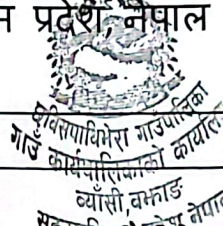 प्रदेश, नेपाल
छबिसपाथिभेरा गाउँपालिका
गाउँ कार्यपालिकाको कार्यालय
ब्याँसी, बझाङ
नेपाल